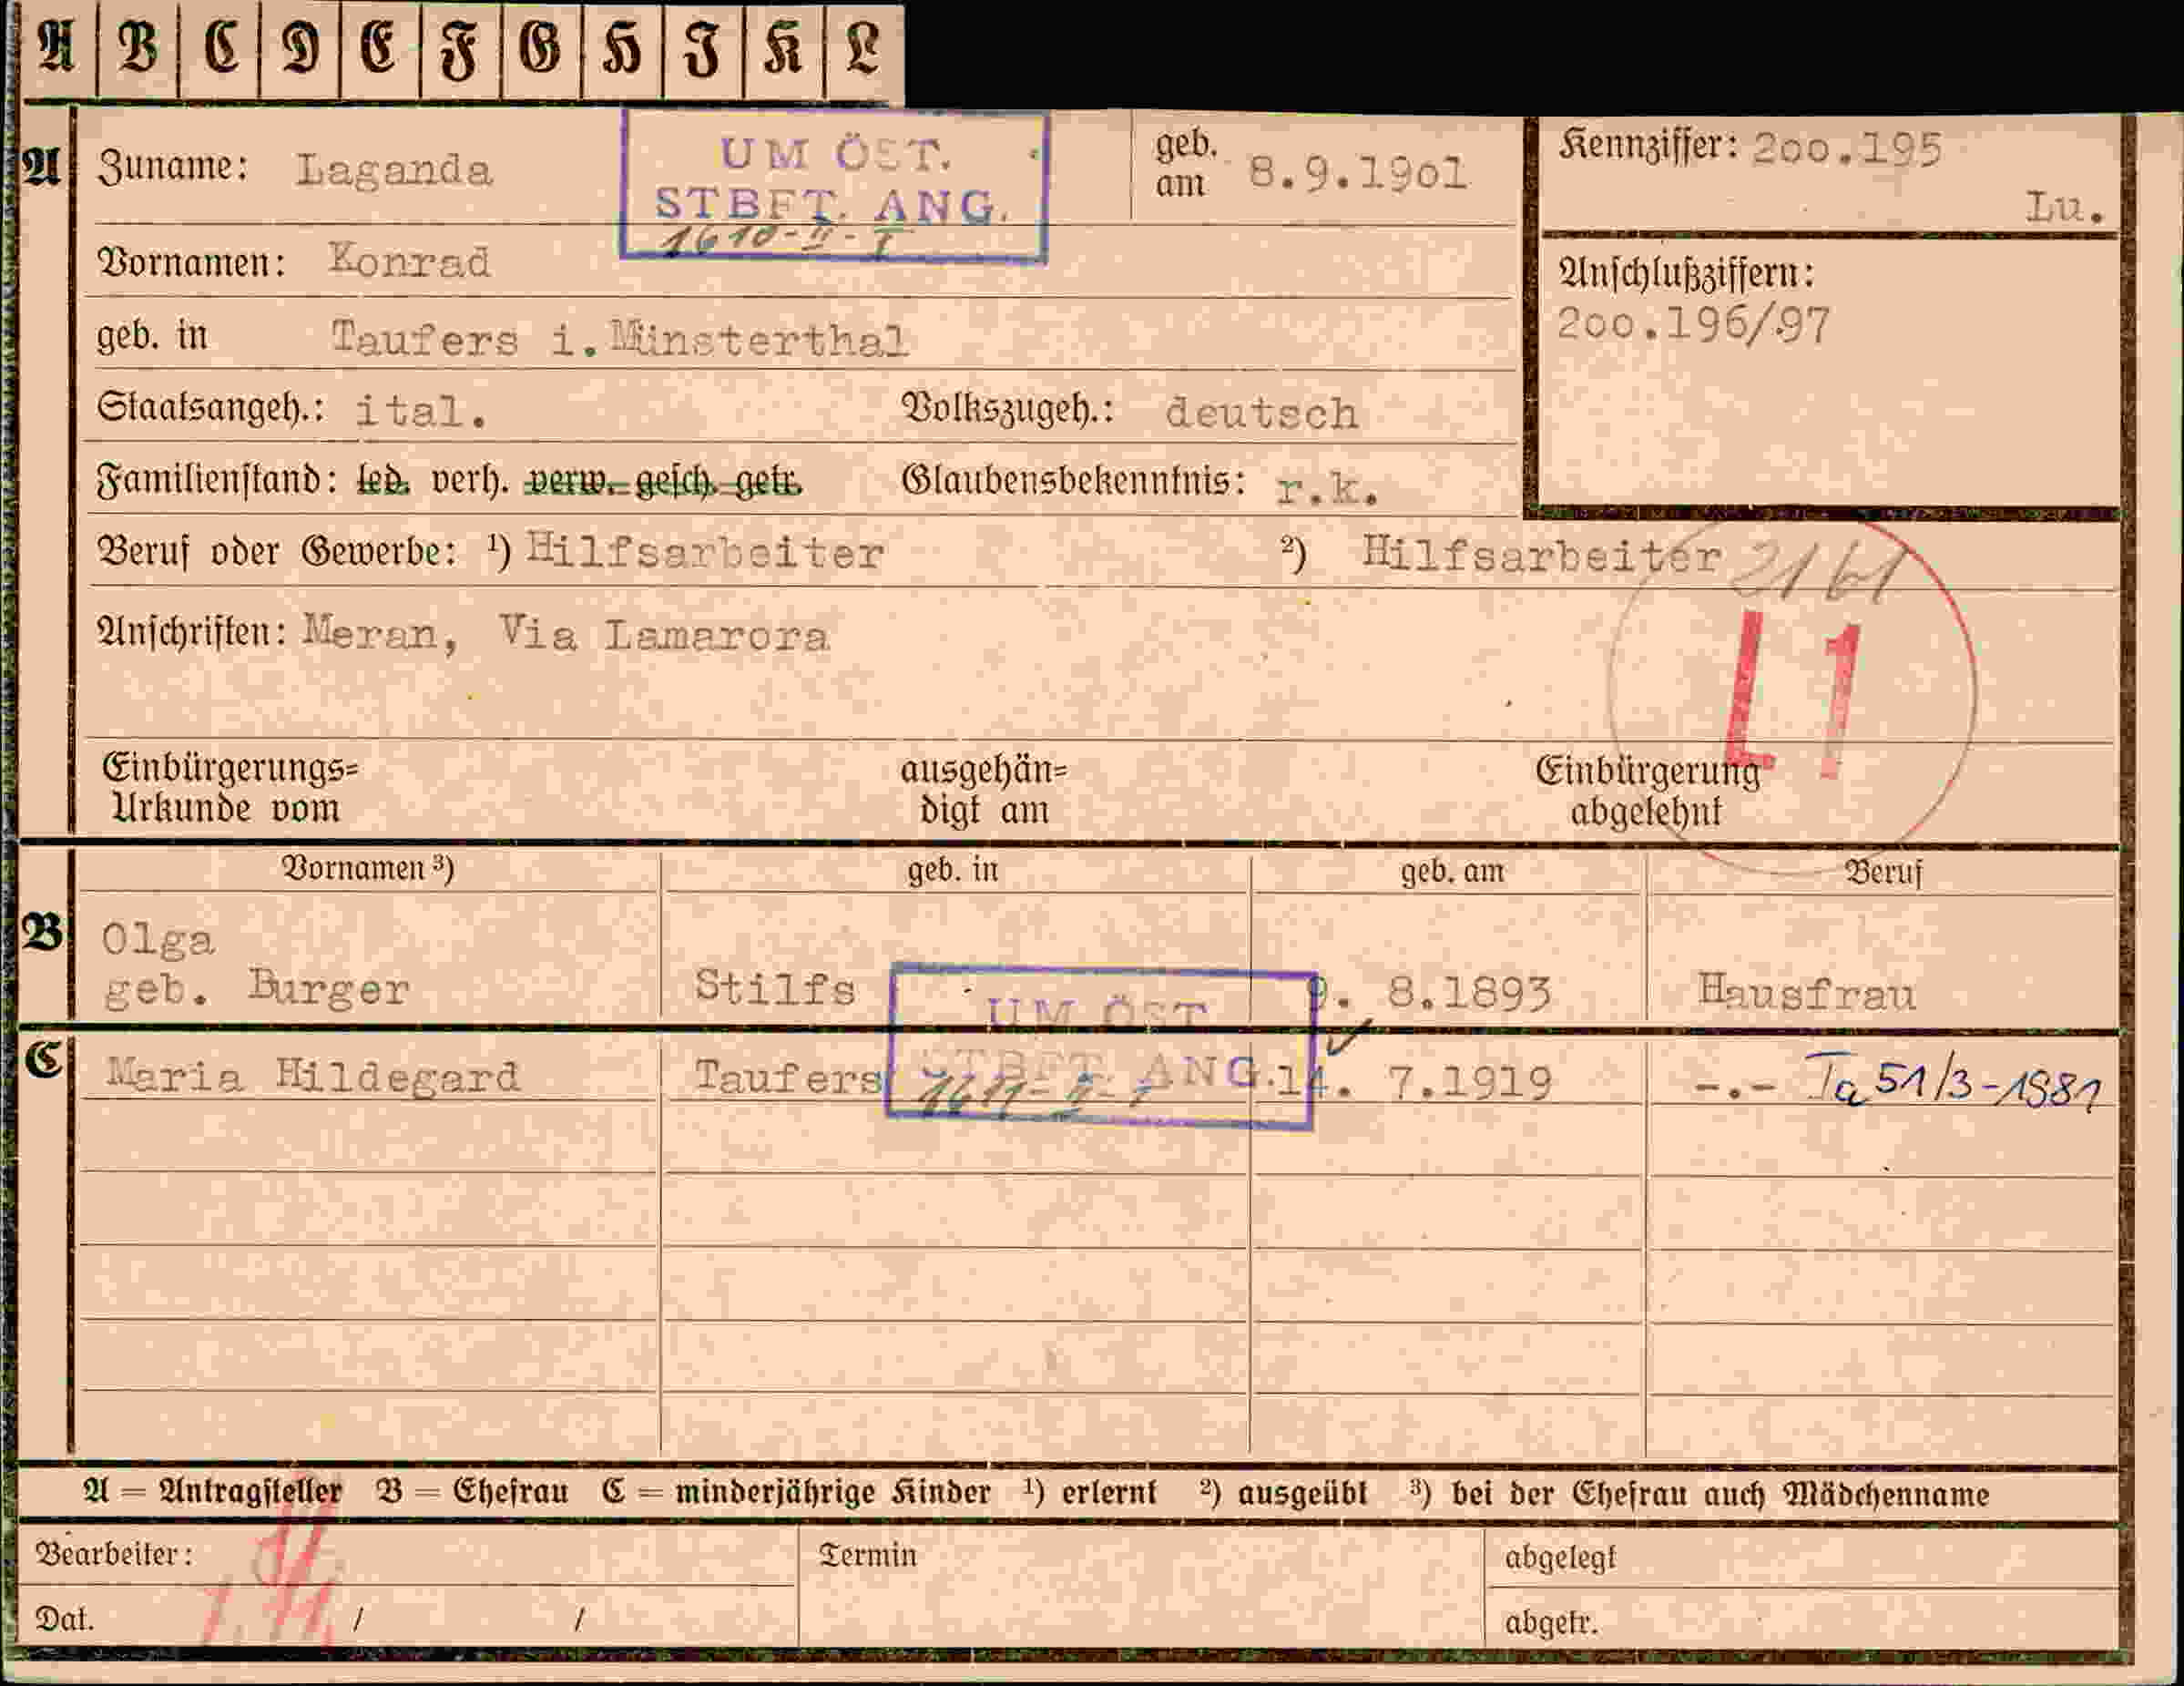 A B C D E F G H J K L
A Zuname: Laganda
UM ÖST.
STBFT. ANG.
1610-II-I
geb. am 8.9.19o1
Kennziffer: 2oo.195
Lu.
Vornamen: Konrad
Anschlußziffern:
2oo.196/97
geb. in Taufers i.Münsterthal
Staatsangeh.: ital. Volkszugeh.: deutsch
Familienstand: led. verh. verw. gesch. getr. Glaubensbekenntnis: r.k.
Beruf oder Gewerbe: ¹) Hilfsarbeiter ²) Hilfsarbeiter 2161
Anschriften: Meran, Via Lamarora
L1
Einbürgerungs=
Urkunde vom
ausgehän=
digt am
Einbürgerung
abgelehnt
Vornamen ³) geb. in geb. am Beruf
B Olga
geb. Burger Stilfs 9. 8.1893 Hausfrau
UM ÖST
STBFT. ANG.
C Maria Hildegard Taufers 14. 7.1919 -.- Ta 51/3-1981
A = Antragsteller B = Ehefrau C = minderjährige Kinder ¹) erlernt ²) ausgeübt ³) bei der Ehefrau auch Mädchenname
Bearbeiter: Termin abgelegt
Dat. / / abgetr.